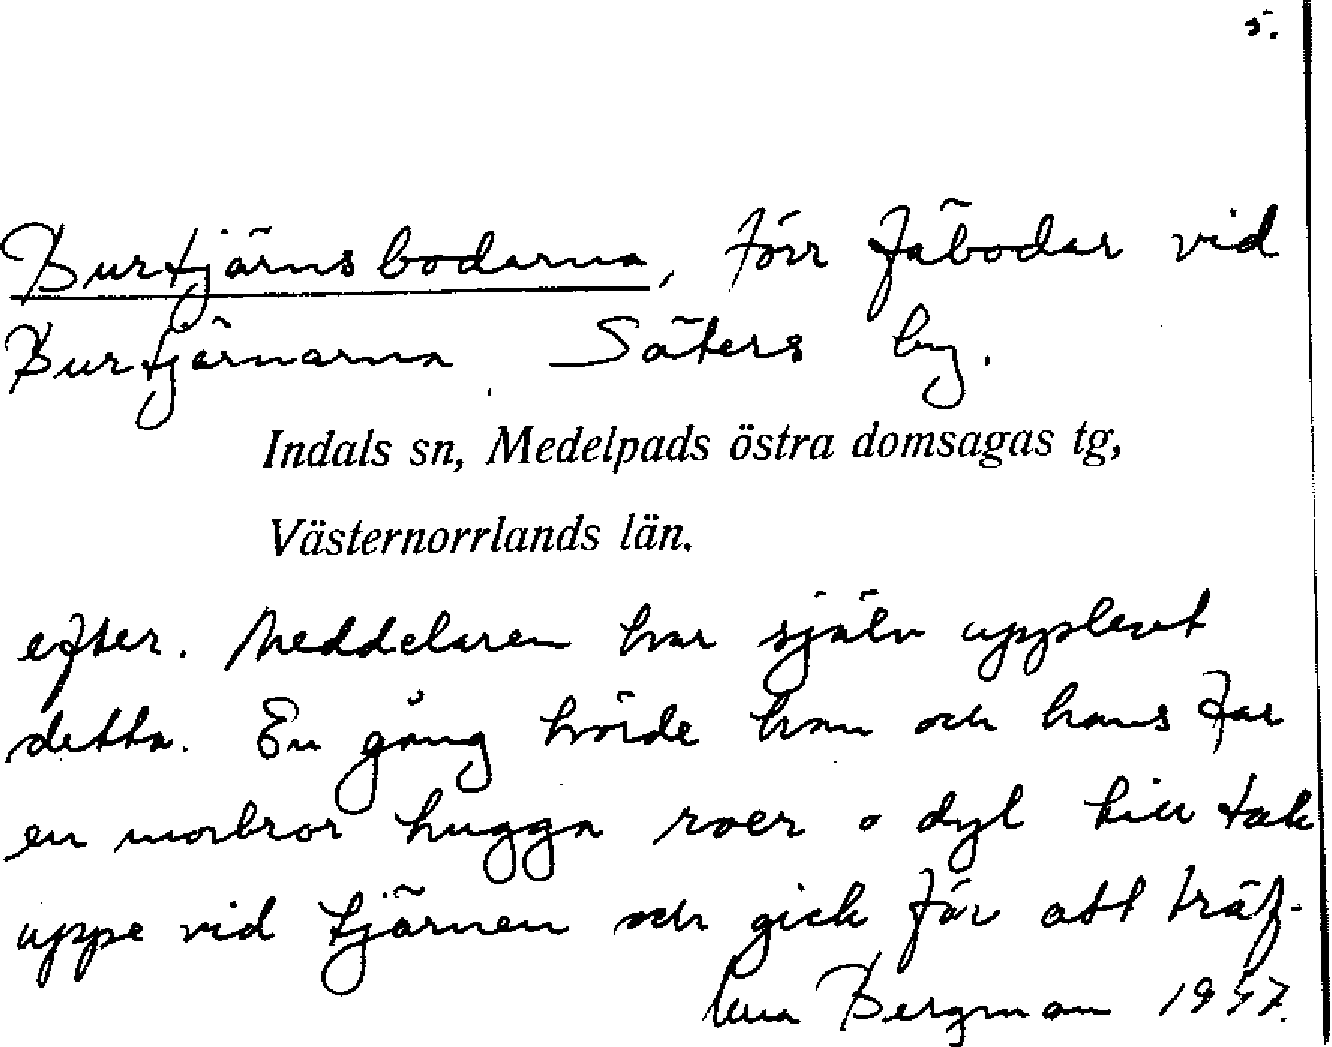 5.
Burtjärnsbodarna, förr fäbodar vid
Burtjärnarna Säters by.
Indals sn, Medelpads östra domsagas tg,
Västernorrlands län.
efter. Meddelaren har själv upplevt
detta. En gång hörde han och hans far
en morbror hugga roer o dyl till tak
uppe vid tjärnen och gick för att träf-
Bergman 1957.